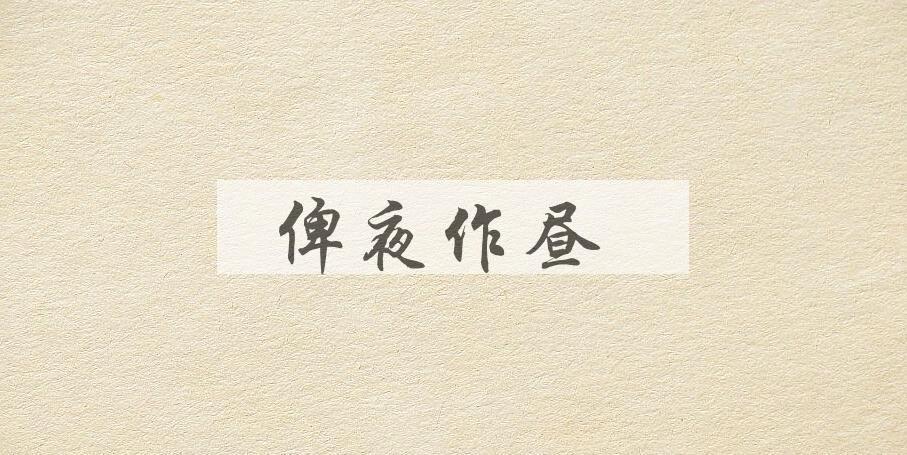 俾夜作昼